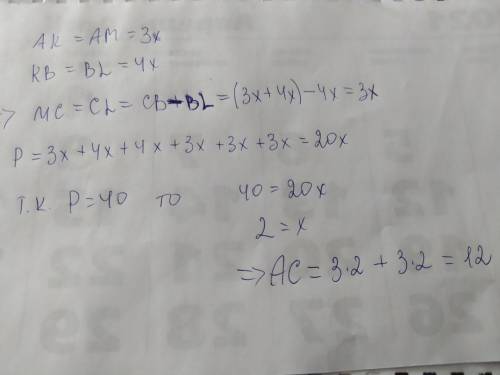 AK = AM = 3x
KB = BL = 4x
=> MC = CL = CB - BL = (3x + 4x) - 4x = 3x
P = 3x + 4x + 4x + 3x + 3x + 3x = 20x
Т.К. P = 40 то 40 = 20x
2 = x
=> AC = 3·2 + 3·2 = 12